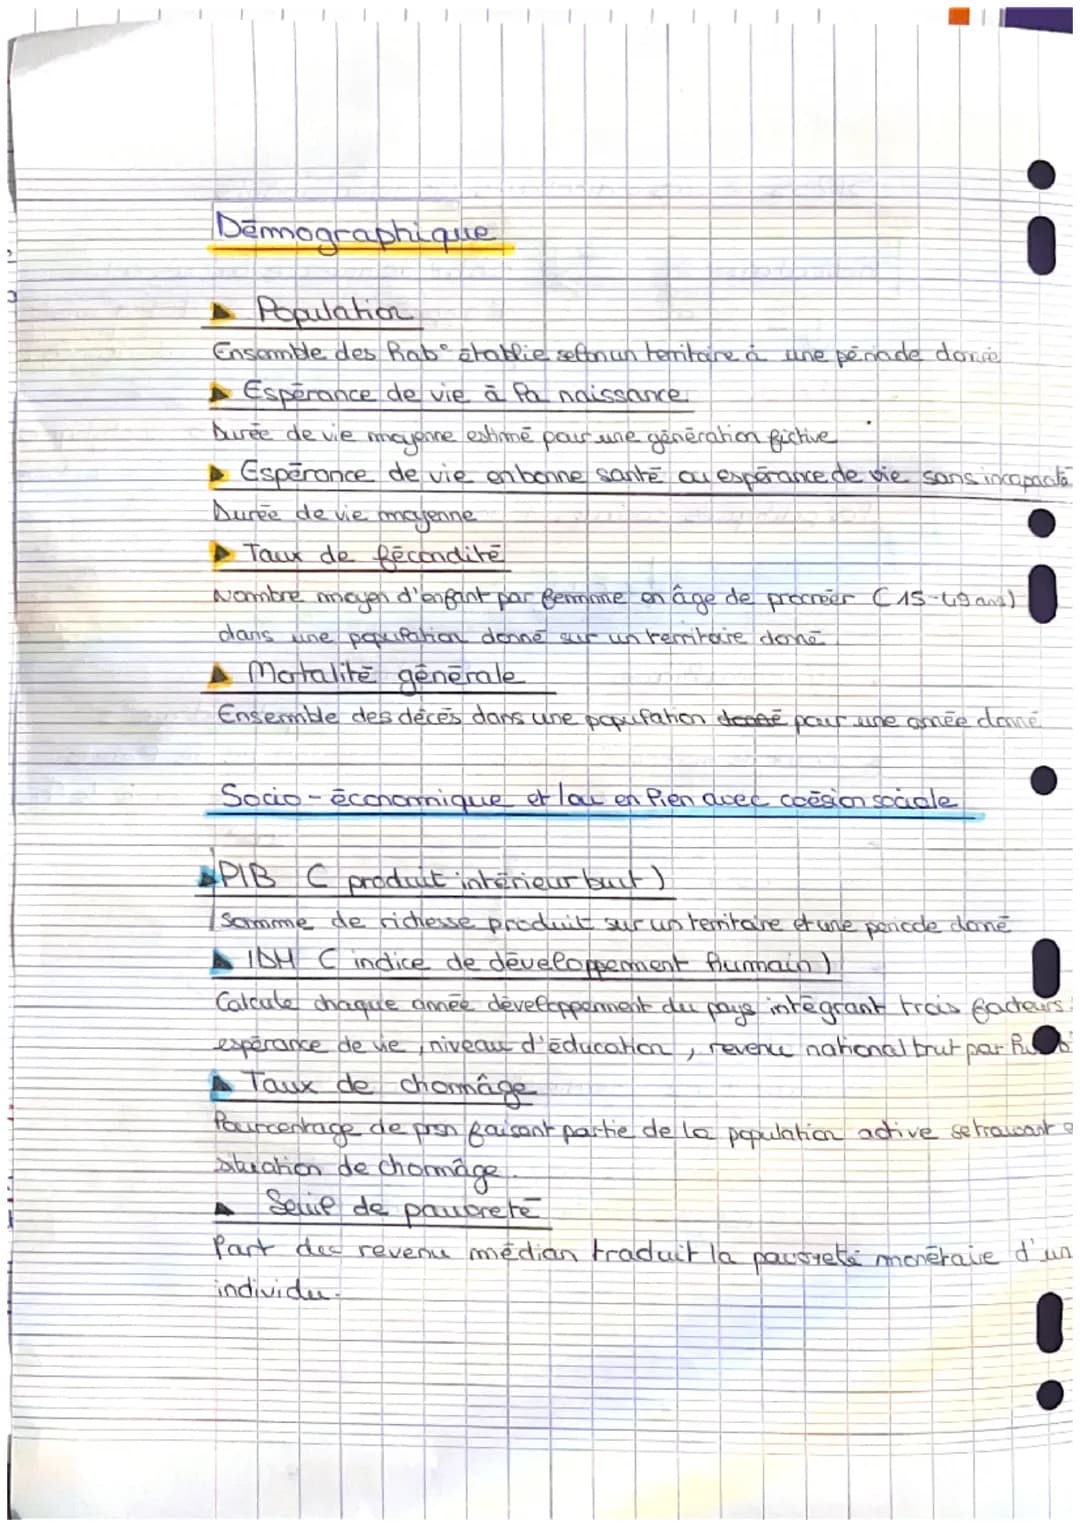 Démographique
Population
Ensemble des hab° établie selon un territoire à une période donné
Espérance de vie à la naissance
Durée de vie moyenne estimé pour une génération fictive
Espérance de vie en bonne santé ou espérance de vie sans incapacité
Durée de vie moyenne
Taux de fécondité
Nombre moyen d'enfant par femme en âge de procréer (15-49 ans)
dans une population donné sur un territoire donné
Mortalité générale
Ensemble des décés dans une population donné pour une année donné
Socio-économique et/ou en lien avec coésion sociale
PIB ( produit intérieur but )
Somme de richesse produit sur un territoire et une periode donné
IDH ( indice de développement humain )
Calcule chaque année développement du pays intégrant trois facteurs
espérance de vie, niveau d'éducation, revenu national brut par
Taux de chomâge
Pourcentage de prsn faisant partie de la population active se trouvant
situation de chomâge.
Seuil de pauvreté
Part du revenu médian traduit la pauvreté monétaire d'un
individu.